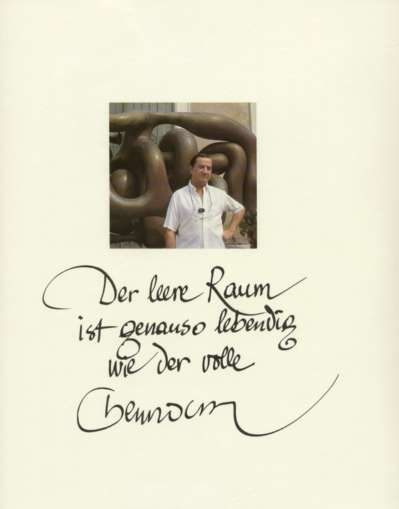 Der leere Raum
ist genauso lebendig
wie der volle